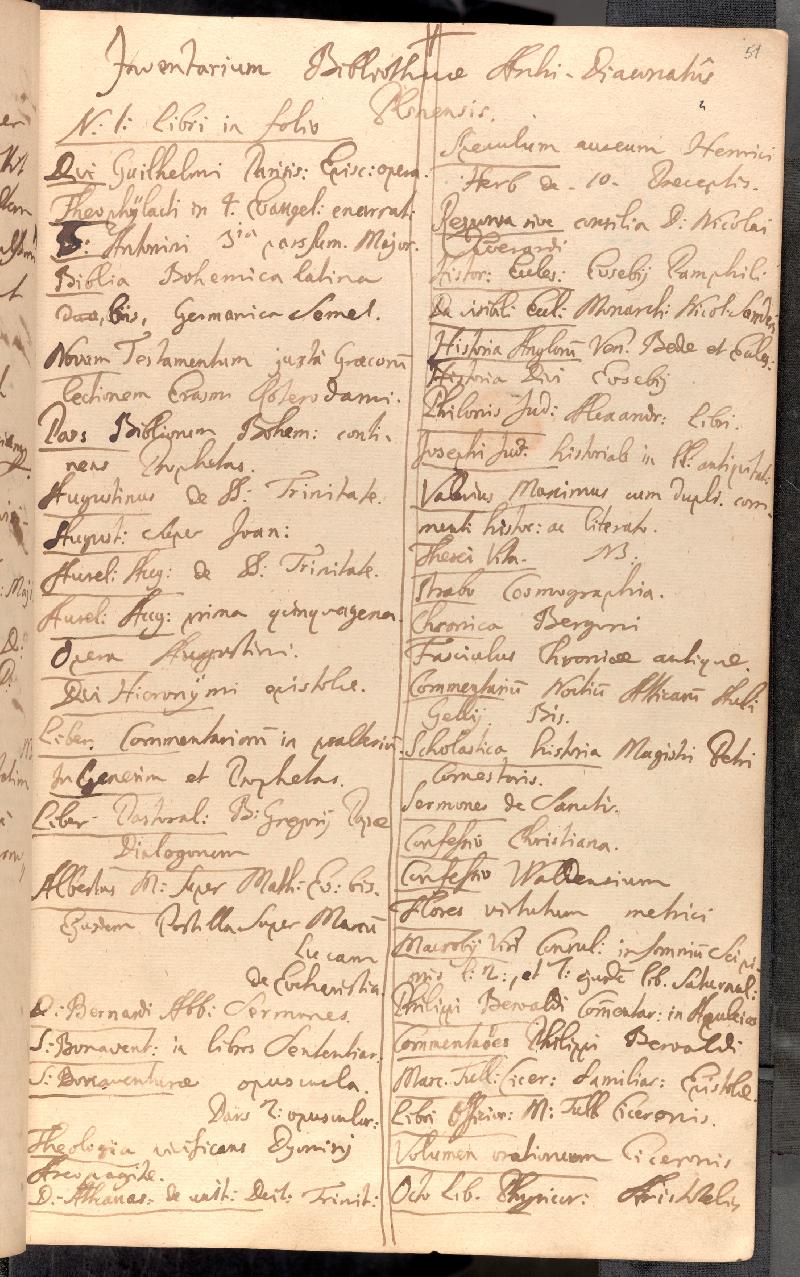 51
Inventarium Bibliothecae Archi-Diaconatûs
Plsnensis.
N: 1: Libri in folio
Divi Guilhelmi Parisis: Episc: opera.
Theophÿlacti in 4. Evangel: enarrat:
D: Antonini 3ia pars sum. Major.
Biblia Bohemica latina
bis, Germanica Semel.
Novum Testamentum juxta Graecorū
lectionem Erasmi Roterodami.
Pars Bibliorum Bohem: conti-
nens Prophetas.
Augustinus de SS: Trinitate.
August: super Joan:
Aurel: Aug: de SS: Trinitate.
Aurel: Aug: prima quinquagena.
Opera Augustini.
Divi Hieronÿmi epistolae.
Liber Commentariorū in psalteriū.
In Genesim et Prophetas.
Liber Pastoral: B: Gregorij Papae
Dialogorum
Albertus M: super Math: Ev: bis.
Ejusdem Postilla super Marcū
Lucam
de Eucharistia.
D: Bernardi Abb: Sermones.
S: Bonavent: in libros Sententiar:
S: Bonaventurae opuscula.
Pars 2: opusculor:
Theologia vivificans Dyonisij
Areopagitae.
D: Athanas: de unit: Deit: Trinit:
Speculum aureum Henrici
Herb de 10 Praeceptis.
Responsa sive consilia D: Nicolai
Everardi
Histor: Eccles: Eusebij Pamphili:
De visibili Eccl: Monarch: Nicol: Sanderi
Historia Anglorū Ven: Bedae et Eccles:
Historia Divi Eusebij
Philonis Jud: Alexandr: Libri.
Josephi Jud: historiale in ll: antiquitat:
Valerius Maximus cum dupli. com-
menti histor: ac literato.
Thesei Vita. NB.
Strabo Cosmographia.
Chronica Bergomi
Fasciculus Chronicae antiquae.
Commentariū Noctiū Atticarū Auli
Gellij Bis.
Scholastica historia Magistri Petri
Comestoris.
Sermones de Sanctis.
Confessio Christiana.
Confessio Waldensium
Flores virtutum metrici
Macrobij Viri Consul: in somniū Scipi-
onis l: 2:, et 7: ejusdē lib. Saturnal:
Philippi Beroaldi Commentar: in Apuleios
Commentaões Philippi Beroaldi
Marc. Tull: Cicer: familiar: Epistolae.
Libri Officior: M: Tull Ciceronis.
Volumen orationum Ciceronis
Octo Lib. Physicor: Aristotelis